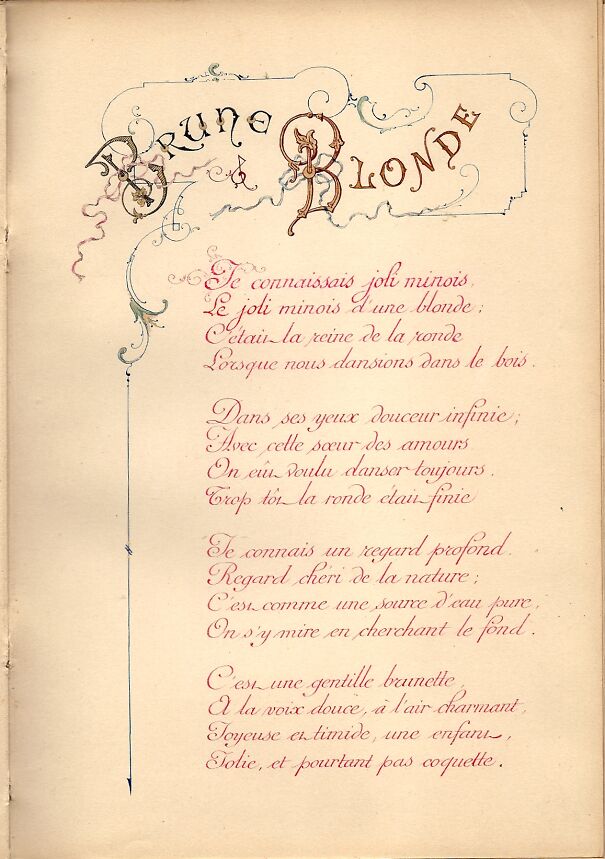 Brune & Blonde
Je connaissais joli minois,
Le joli minois d'une blonde;
C'était la reine de la ronde
Lorsque nous dansions dans le bois.
Dans ses yeux douceur infinie;
Avec cette sœur des amours
On eût voulu danser toujours.
Trop tôt la ronde était finie
Je connais un regard profond.
Regard chéri de la nature;
C'est comme une source d'eau pure,
On s'y mire en cherchant le fond.
C'est une gentille brunette,
A la voix douce, à l'air charmant,
Joyeuse et timide, une enfant,
Jolie, et pourtant pas coquette.